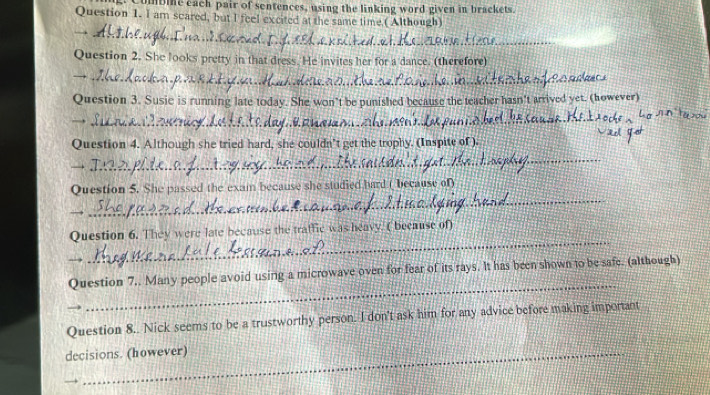 Combine each pair of sentences, using the linking word given in brackets.
Question 1. I am scared, but I feel excited at the same time.( Although)
→ Although I'm scared I feel excited at the same time
Question 2. She looks pretty in that dress. He invites her for a dance. (therefore)
→ in that dress
Question 3. Susie is running late today. She won't be punished because the teacher hasn't arrived yet. (however)
→ late today because the hasn't
Question 4. Although she tried hard, she couldn't get the trophy. (Inspite of ).
→ Inspite of hard, get the trophy
Question 5. She passed the exam because she studied hard ( because of)
→ She passed the exam because of studying hard
Question 6. They were late because the traffic was heavy. ( because of)
→ They were late because of
Question 7.. Many people avoid using a microwave oven for fear of its rays. It has been shown to be safe. (although)
→
Question 8.. Nick seems to be a trustworthy person. I don't ask him for any advice before making important
decisions. (however)
→